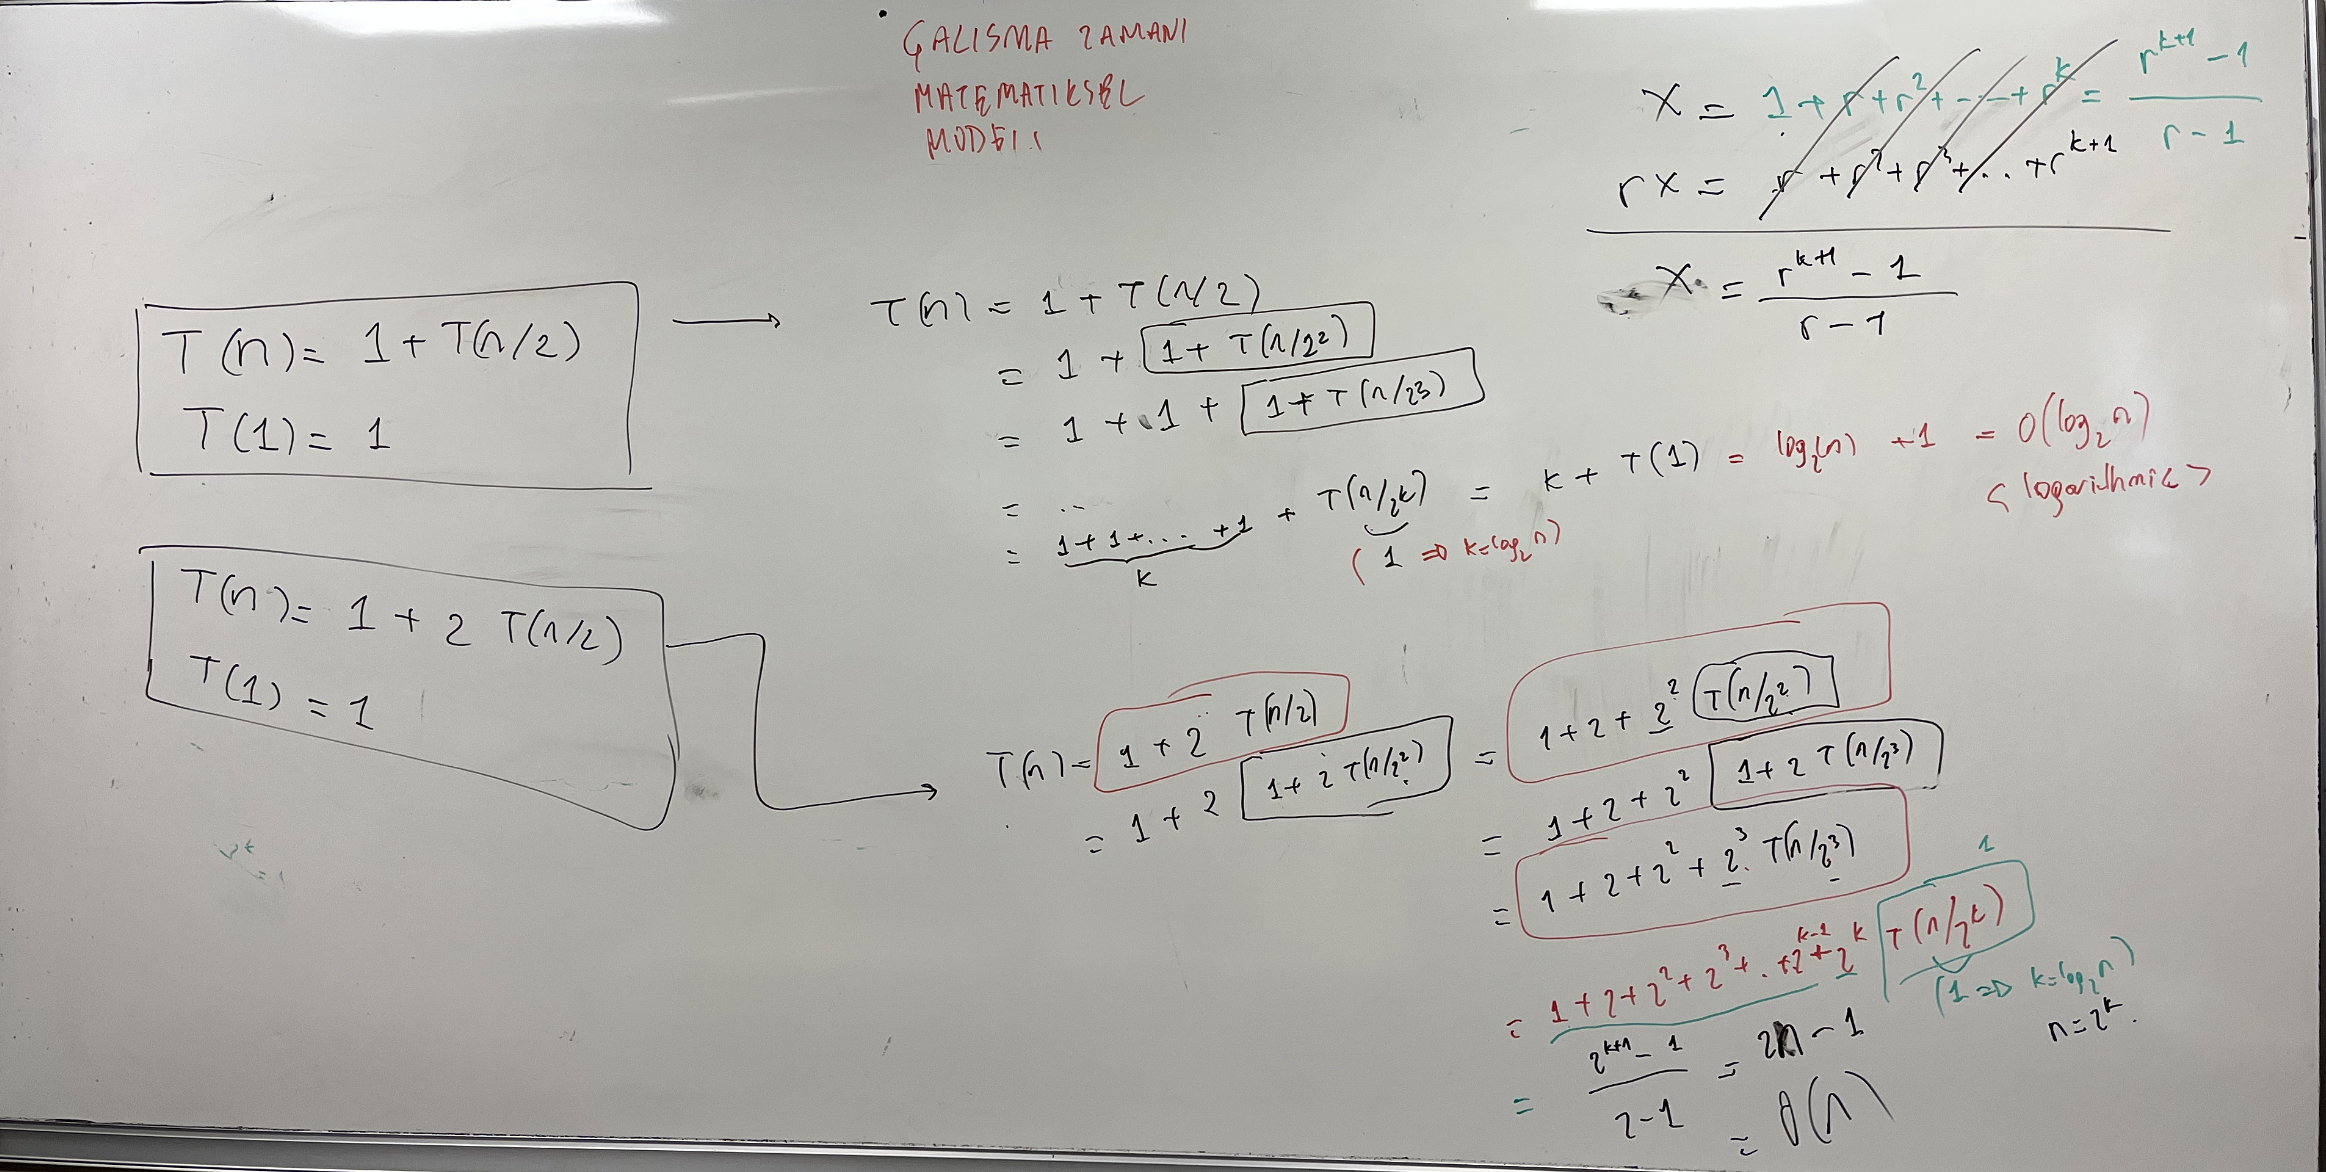 ÇALISMA ZAMANI
MATEMATIKSEL
MODELI
X = 1 + r + r² + --- + r^k = (r^(k+1) - 1) / (r - 1)
rX = r + r² + r³ + ... + r^(k+1)
X = (r^(k+1) - 1) / (r - 1)
T(n) = 1 + T(n/2)
T(1) = 1
T(n) = 1 + T(n/2)
= 1 + 1 + T(n/2²)
= 1 + 1 + 1 + T(n/2³)
= ...
= 1 + 1 + ... + 1 + T(n/2^k) = k + T(1) = log₂(n) + 1 = O(log₂n)
k
(1 ⇒ k = log₂n)
< logarithmic >
T(n) = 1 + 2 T(n/2)
T(1) = 1
T(n) = 1 + 2 T(n/2)
= 1 + 2 1 + 2 T(n/2²)
= 1 + 2 + 2² T(n/2²)
= 1 + 2 + 2² 1 + 2 T(n/2³)
= 1 + 2 + 2² + 2³. T(n/2³)
1
= 1 + 2 + 2² + 2³ + . + 2^(k-1) + 2^k T(n/2^k)
(1 ⇒ k = log₂n)
n = 2^k.
= (2^(k+1) - 1) / (2 - 1) = 2n - 1
= O(n)